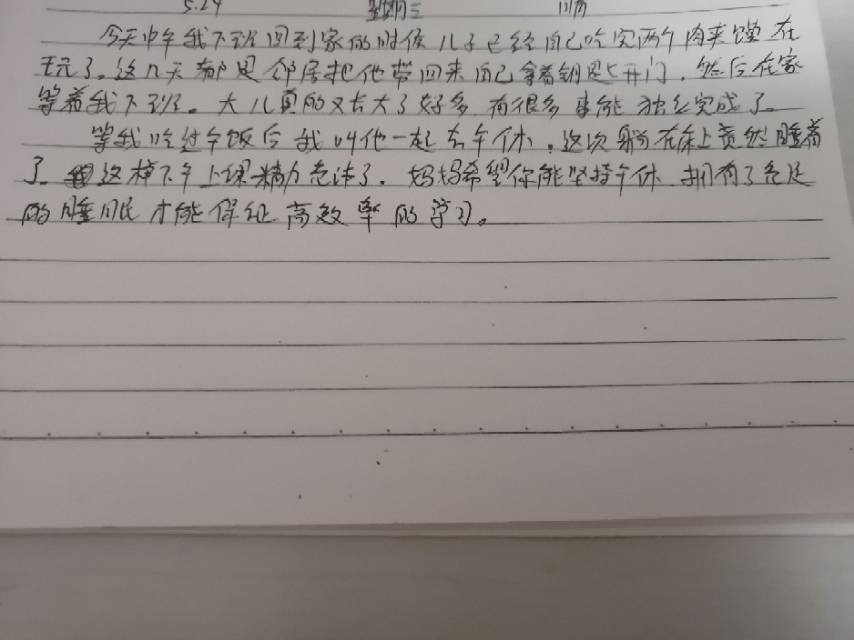 5.24 星期三 晴
今天中午我下班回到家的时候儿子已经自己吃完两个肉夹馍在
玩了。这几天都是邻居把他带回来自己拿着钥匙开门,然后在家
等着我下班。大儿真的又长大了好多 有很多事能独立完成了。
等我吃过午饭后我叫他一起去午休,这次躺在床上竟然睡着
了 这样下午上课精力充沛了。妈妈希望你能坚持午休 拥有了充足
的睡眠才能保证高效率的学习。